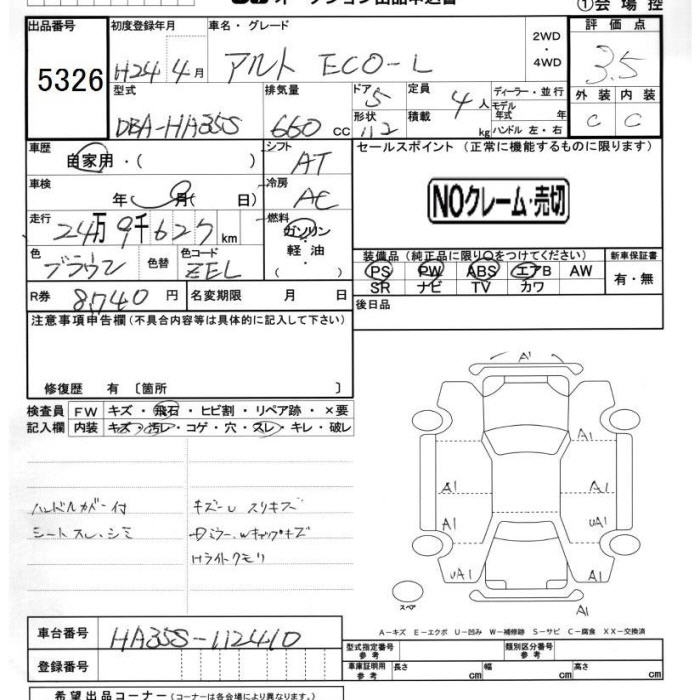 ①会場控
出品番号 初度登録年月 車名・グレード 評価点
5326 H24 4月 アルト ECO-L 2WD・4WD 3.5
型式 排気量 ドア 定員 ディーラー・並行 外装 内装
DBA-HA35S 660cc 5 4人 モデル年式 年 C C
形状 112 積載 kg ハンドル 左・右
車歴 自家用・( ) シフト AT セールスポイント (正常に機能するものに限ります)
車検 年 月( 日) 冷房 AC
NOクレーム・売切
走行 24万9千627km 燃料 ガソリン・軽油・( )
色 ブラウン 色替 色コード ZEL
装備品(純正品に限り○をつけてください) 新車保証書
PS PW ABS エアB AW 有・無
SR ナビ TV カワ
R券 8,740円 名変期限 月 日 後日品
注意事項申告欄(不具合内容等は具体的に記入して下さい)
修復歴 有 〔箇所 〕
検査員 FW キズ・飛石・ヒビ割・リペア跡・×要
記入欄 内装 キズ・汚レ・コゲ・穴・スレ・キレ・破レ
ハンドルカバー付 キズーU スリキズ
シートスレ、シミ
Hライトクモリ
A1
A1
A1
A1 A1
A1 UA1
UA1 A1
A1
スペア
A-キズ E-エクボ U-凹み W-補修跡 S-サビ C-腐食 XX-交換済
車台番号 HA35S-112410
登録番号
型式指定番号 参考 類別区分番号 参考
車庫証明用 参考 長さ cm 幅 cm 高さ cm
希望出品コーナー(コーナーは各会場により異なります)